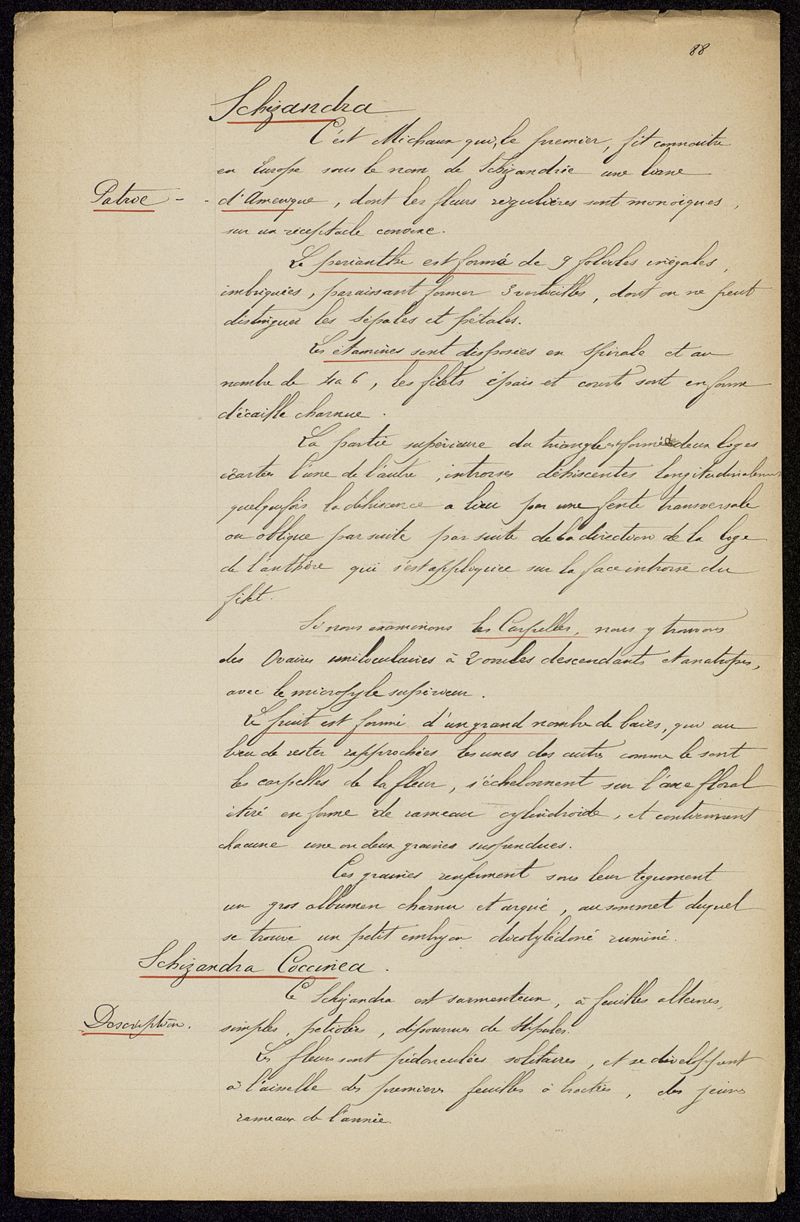 88
Schizandra
C'est Michaux qui, le premier, fit connaitre
en Europe sous le nom de Schizandrée une liane
Patrie - - d'Amérique, dont les fleurs régulières sont monoïques,
sur un réceptacle convexe.
Le périanthe est formé de 9 folioles inégales,
imbriquées, paraissant former 3 verticilles, dont on ne peut
distinguer les sépales et pétales.
Les étamines sont disposées en spirale et au
nombre de 4 à 6, les filets épais et courts sont en forme
d'écaille charnue.
La partie supérieure du triangle est formée de deux loges
écartées l'une de l'autre, introrses déhiscentes longitudinalement
quelquefois la déhiscence a lieu par une fente transversale
ou oblique par suite par suite de la direction de la loge
de l'anthère qui s'est appliquée sur la face introrse du
filet.
Si nous examinons les Carpelles, nous y trouvons
des Ovaires uniloculaires à 2 ovules descendants et anatropes,
avec le micropyle supérieur.
Le fruit est formé d'un grand nombre de baies, qui au
lieu de rester rapprochées les unes des autres comme le sont
les carpelles de la fleur, s'échelonnent sur l'axe floral
étiré en forme de rameau cylindroïde, et contiennent
chacune une ou deux graines suspendues.
Ces graines renferment sous leur tégument
un gros albumen charnu et arqué, au sommet duquel
se trouve un petit embryon dicotylédoné ruminé.
Schizandra Coccinea.
Ce Schizandra est sarmenteux, à feuilles alternes,
Description. simples, pétiolées, dépourvues de stipules.
Les fleurs sont pédonculées solitaires, et se développent
à l'aisselle des premières feuilles à bractées, des jeunes
rameaux de l'année.